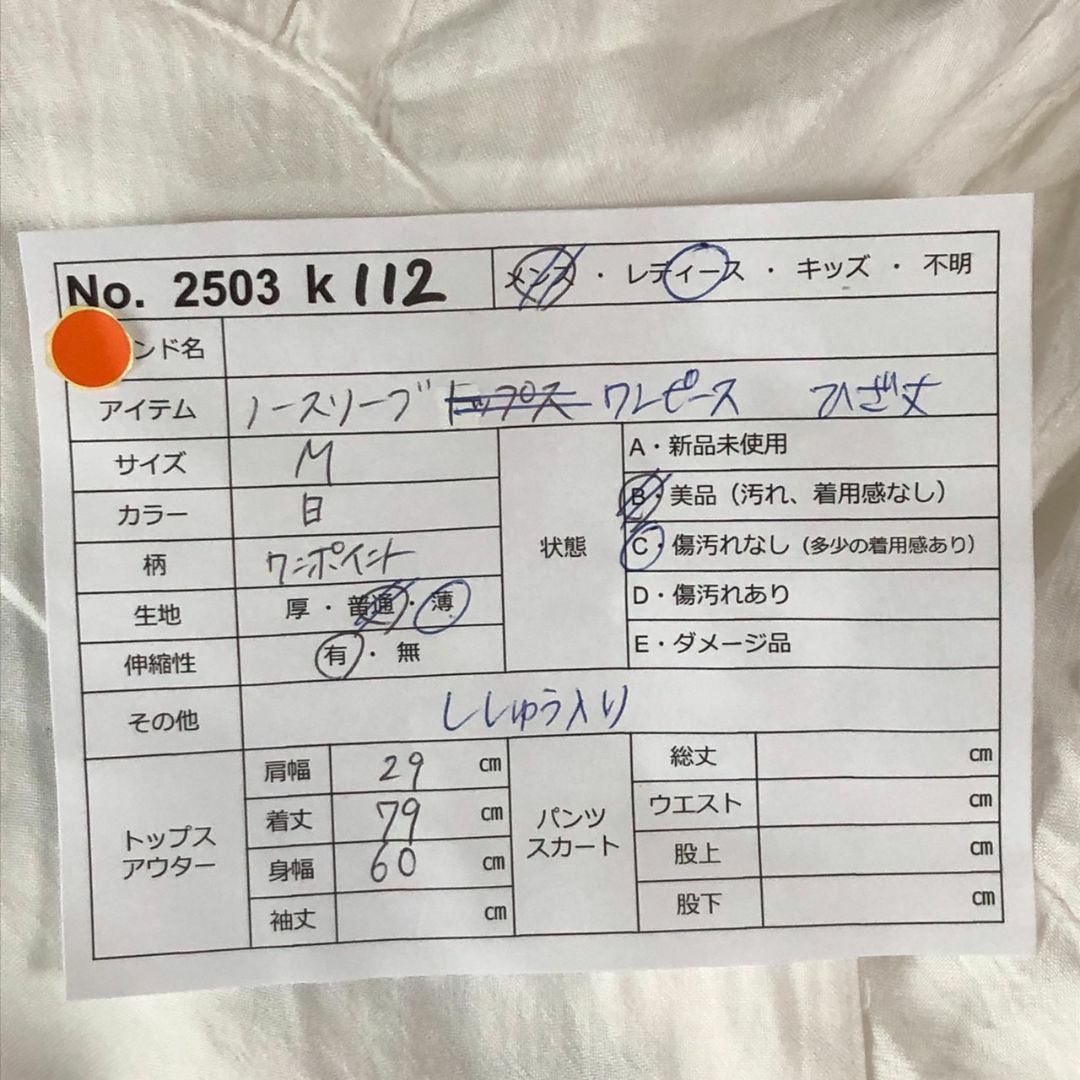 No. 2503 k 112
メンズ・レディース・キッズ・不明
ンド名
アイテム ノースリーブ トップス ワンピース ひざ丈
サイズ M
カラー 白
柄 ワンポイント
生地 厚・普通・薄
伸縮性 有・無
状態
A・新品未使用
B・美品（汚れ、着用感なし）
C・傷汚れなし（多少の着用感あり）
D・傷汚れあり
E・ダメージ品
その他 ししゅう入り
トップス
アウター
肩幅 29 cm
着丈 79 cm
身幅 60 cm
袖丈 cm
パンツ
スカート
総丈 cm
ウエスト cm
股上 cm
股下 cm